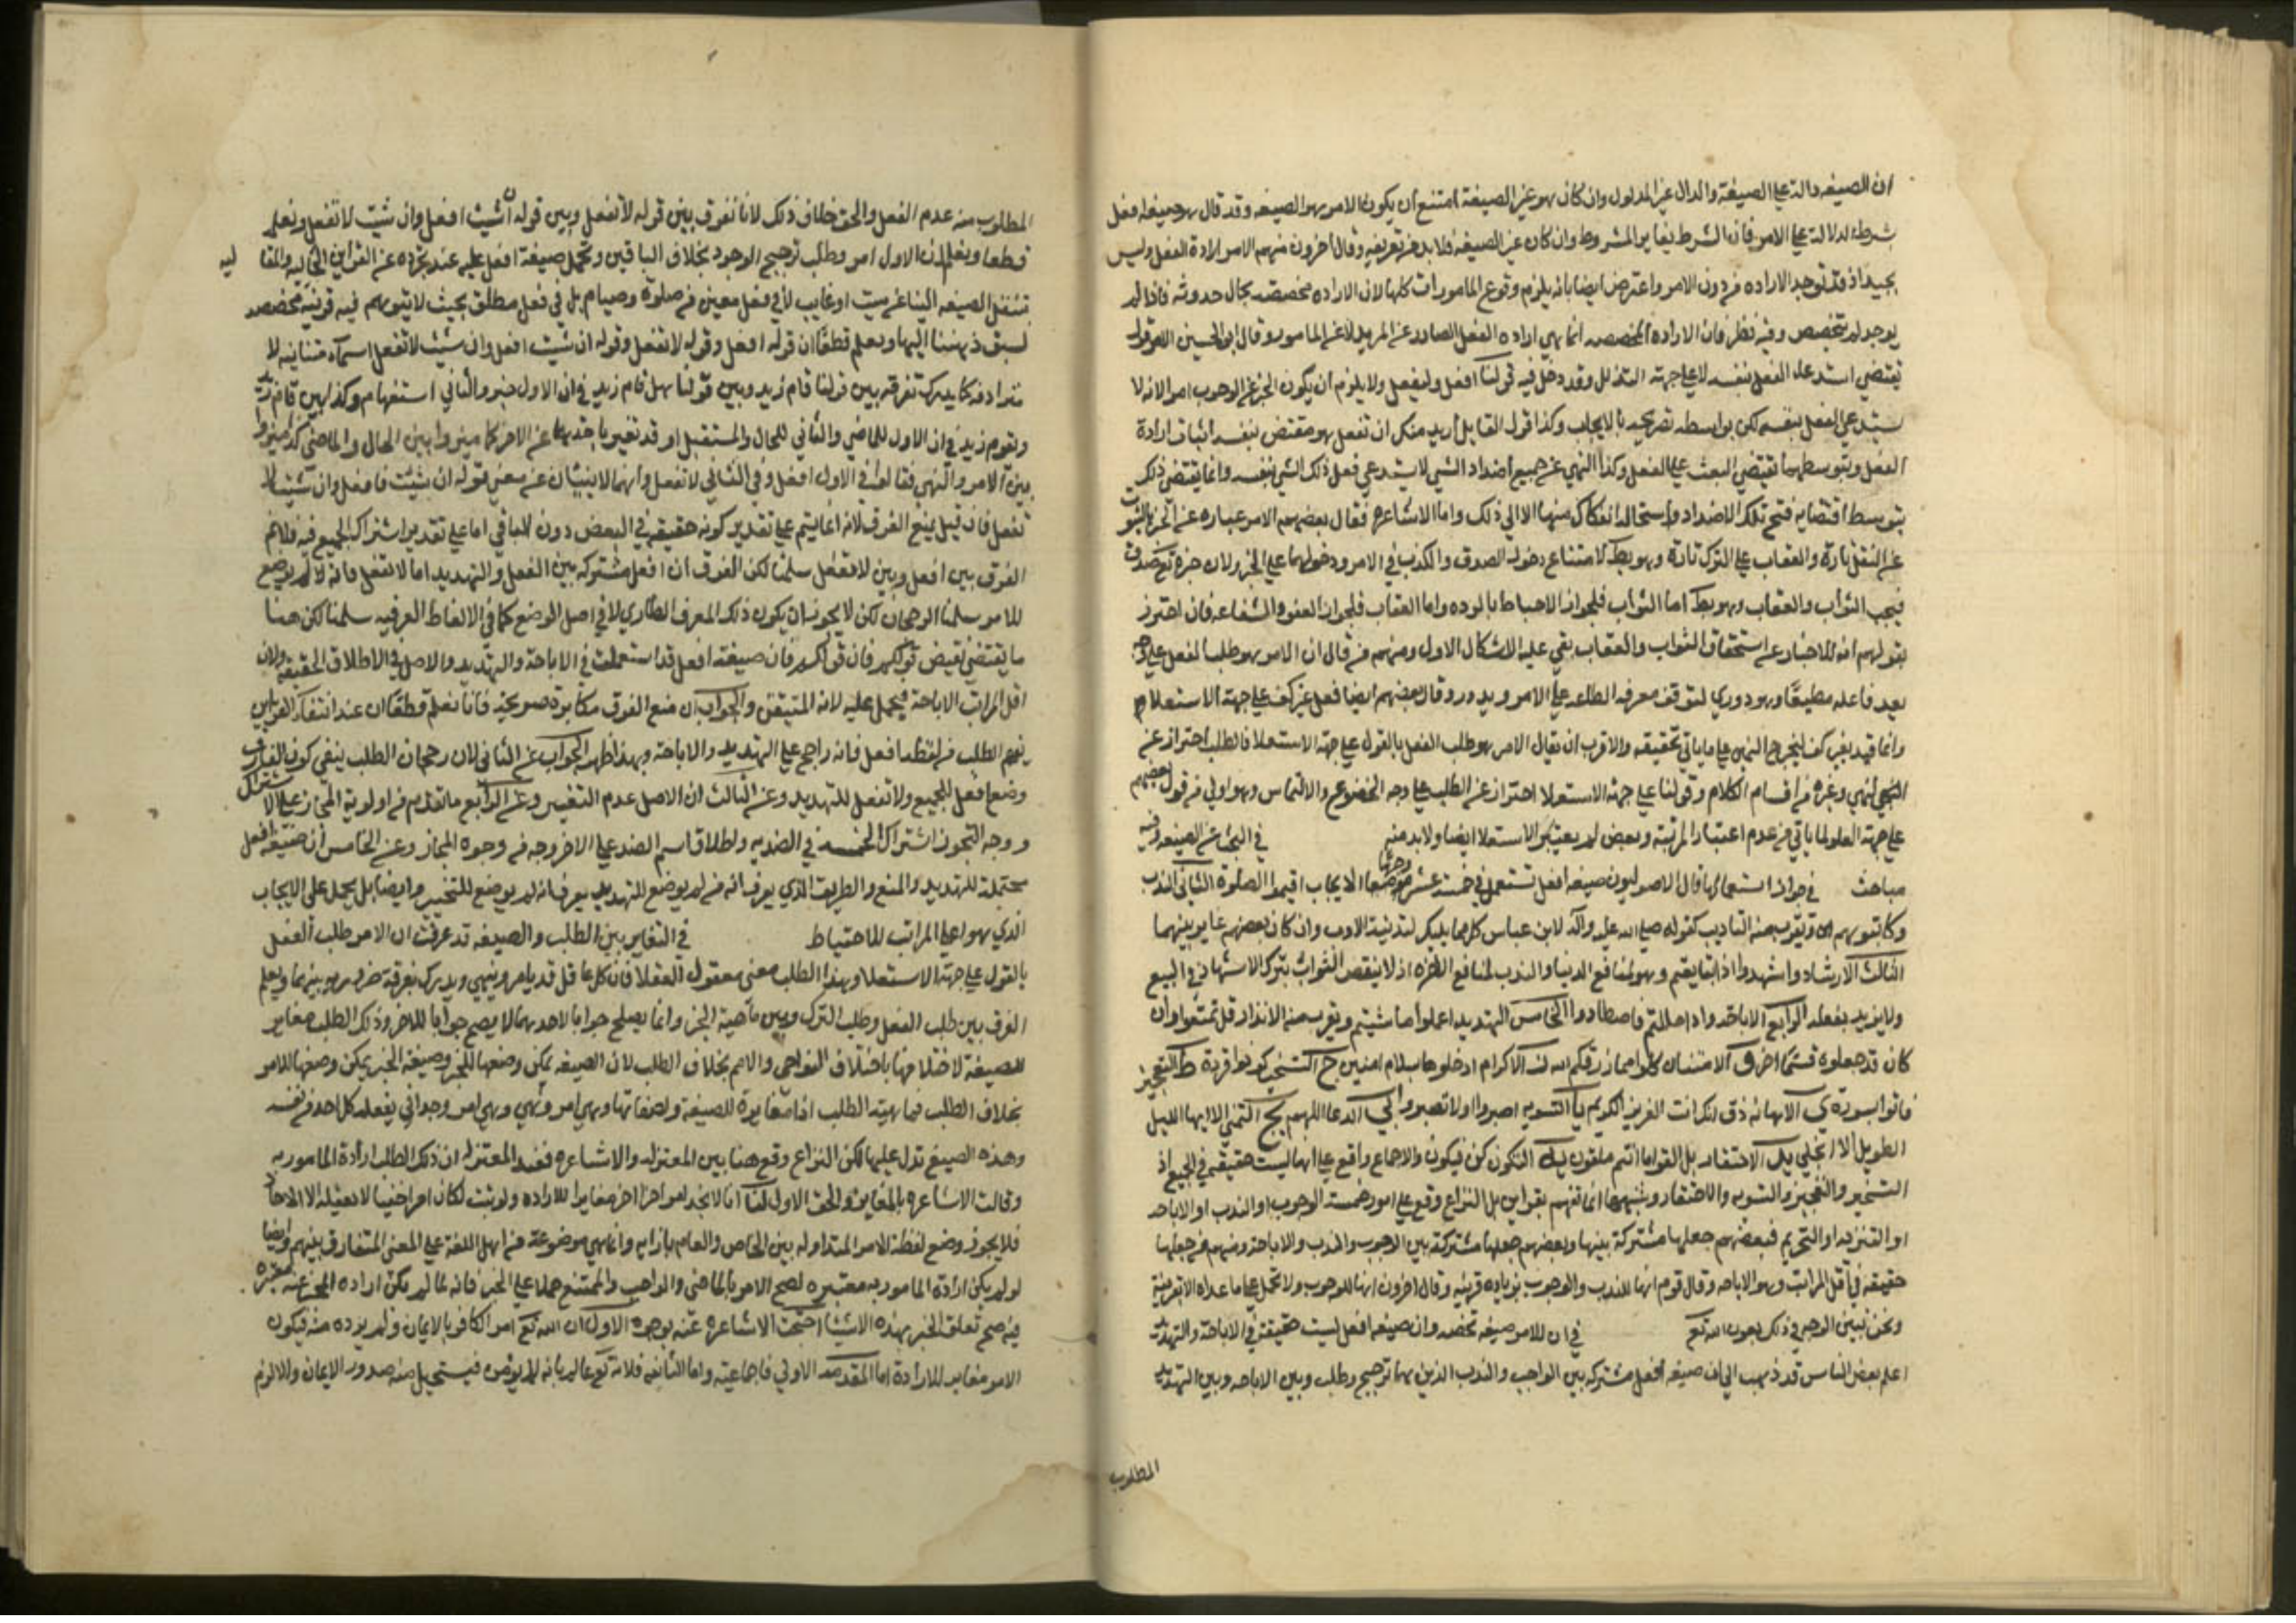 ان الصيغه دالة على الصيغة والدال غير المدلول وان كان هو غير الصيغة امتنع أن يكون الامر هو الصيغه وقد قال هو صيغة افعل
شرطه لدلالته على الامر فان الشرط يغاير المشروط وان كان غير الصيغة فلابد من تعريفه وقال اخرون منهم الامر ارادة الفعل وليس
بجيد اذ قد توجد الاراده من دون الامر واعترض ايضا بانه يلزم وقوع المامورات كلها لان الاراده مخصصة بحال حدوثه فاذا لم
يوجد لم يتخصص وفيه نظر فان الارادة المخصصه انما هي ارادة الفعل الصادر عن المريد لا عن المامور وقال ابو الحسين الامر قول
يقتضي استدعاء الفعل بنفسه لا على جهة التذلل وقد دخل فيه قولنا افعل وليفعل ولا يلزم ان يكون الخبر عن الوجوب امرا لانه لا
يستدعي الفعل بنفسه لكن بواسطه تصريحه بالايجاب وكذا قول القايل أريد منك ان تفعل هو مقتض بنفسه اثبات ارادة
الفعل وبتوسطها تقتضي البعث على الفعل وكذا النهي عن جميع اضداد الشي لا يستدعي فعل ذلك الشي بنفسه وانما يقتضي ذلك
بتوسط اقتضايه قبح تلك الاضداد واستحالة انفكاك منها الا الى ذلك واما الاشاعره فقال بعضهم الامر عباره عن الخبر بالثواب
على الفعل تارة والعقاب على الترك تارة وهو بط لامتناع دخول الصدق والكذب في الامر ودخولهما على الخبر ولان خبره تع صدق
فيجب الثواب والعقاب وهو بط اما الثواب فلجواز الاحباط بالرده واما العقاب فلجواز العفو والشفاعه فان احترز
بقولهم انه الاخبار عن استحقاق الثواب والعقاب بقي عليه الاشكال الاول ومنهم من قال ان الامر هو طلب الفعل على وجه
يعد فاعله مطيعا وهو دوري لتوقف معرفه الطاعه على الامر ويدور وقال بعضهم ايضا فعل غير كف على جهة الاستعلاء
وانما قيد بغير كف ليخرج النهي على ما ياتي تحقيقه والاقرب ان يقال الامر هو طلب الفعل بالقول على جهة الاستعلا فالطلب احتراز عن
النهي وغيره من اقسام الكلام وقولنا على جهة الاستعلا احتراز عن الطلب على وجه الخضوع والالتماس وهو اولى من قول بعضهم
على جهة العلو لما ياتي من عدم اعتبار المرتبة وبعض لم يعتبر الاستعلا ايضا ولابد منه في البحث عن الصيغه وفيه
مباحث في جواز استعمالها قال الاصوليون صيغه افعل تستعمل في خمسة عشر وجها الايجاب اقيموا الصلوة الثاني الندب
وكاتبوهم ويقرب منه التاديب كقوله صلى الله عليه واله لابن عباس كل مما يليك لتدنية الادب وان كان بعضهم غاير بينهما
الثالث الارشاد واشهدوا اذا تبايعتم وهو لمنافع الدنيا والندب لمنافع الاخره اذ لا ينقص الثواب بترك الاشهاد في البيع
ولا يزيد بفعله الرابع الاباحه واذا حللتم فاصطادوا الخامس التهديد اعملوا ما شيتم ويقرب منه الانذار قل تمتعوا وان
كان قد جعلوه قسما اخر و الامتنان كلوا مما رزقكم الله ز الاكرام ادخلوها بسلام امنين ح التسخير كونوا قردة ط التعجيز
فاتوا بسورة ي الاهانه ذق انك انت العزيز الكريم يا التسويه اصبروا او لا تصبروا يب الدعا اللهم يج التمني الا ايها الليل
الطويل الا انجلي يد الاحتقار بل القوا ما انتم ملقون يه التكون كن فيكون والاجماع واقع على انها ليست حقيقة في الجميع اذ
التسخير والتعجيز والتسويه والاحتقار وشبهها انما تفهم بقراين بل النزاع وقع على امور خمسة الوجوب او الندب او الاباحه
او التنزيه او التحريم فبعضهم جعلها مشتركة بينها وبعضهم جعلها مشتركة بين الوجوب والندب والاباحة ومنهم من جعلها
حقيقه في اقل المراتب وهو الاباحه وقال قوم انها للندب والوجوب بزياده قرينه وقال اخرون انها للوجوب ولا تحمل على ما عداه الا بقرينة
ونحن نبين الوجه في ذلك بعون الله تع في ان للامر صيغه تخصه وان صيغه افعل ليست حقيقة في الاباحة والتهديد
اعلم بعض الناس قد ذهب الى ان صيغه افعل مشتركه بين الواجب والندب الذين هما ترجيح وطلب وبين الاباحه وبين التهديد
المطلوب
المطلوب منه عدم الفعل والحق خلاف ذلك لانا نفرق بين قوله لا تفعل وبين قوله ان شيت افعل وان شيت لا تفعل ونعلم
قطعا ونعلم ان الاول امر وطلب ترجيح الوجود بخلاف الباقين وتحمل صيغة افعل عليه عند تجرده عن القراين الحاليه والمقاليه
تنقل الصيغه الينا عن ميت او غايب لا في فعل معين من صلوة وصيام بل في فعل مطلق بحيث لا يتوهم فيه قرينة مخصصه
لسبق ذهننا اليها ويعلم قطعا ان قوله افعل وقوله لا تفعل وقوله ان شيت افعل وان شيت لا تفعل اسماء متباينه لا
مترادفه كما يدرك تفرقة بين قولنا قام زيد وبين قولنا هل قام زيد في ان الاول خبر والثاني استفهام وكذا بين قام زيد
ويقوم زيد في ان الاول للماضي والثاني للحال والمستقبل او قد تغير باحدهما عن الاخر كما ميزوا بين الحال والماضي كذا ميزوا
بين الامر والنهي فقالوا في الاول افعل وفي الثاني لا تفعل وانهما لا ينبيان عن معنى قوله ان شيت فافعل وان شيت لا
تفعل فان قيل يمنع الفرق لانه انما يتم على تقدير كونه حقيقه في البعض دون الباقي اما على تقدير اشتراك الجميع فيه فلا نم
الفرق بين افعل وبين لا تفعل سلمنا لكن الفرق ان افعل مشتركه بين الفعل والتهديد اما لا تفعل فانه لم يوضع
للامر سلمنا الرجحان لكن لا يجوز ان يكون ذلك المعرف الطاري لا في اصل الوضع كما في الالفاظ العرفيه سلمنا لكن هنا
ما يقتضي نقيض قولكم فان قولكم فان صيغة افعل قد استعملت في الاباحة والتهديد والاصل في الاطلاق الحقيقه ولان
اقل المراتب الاباحة فيحمل عليه لانه المتيقن والجواب ان منع الفرق مكابرة صريحة فانا نعلم قطعا ان عند انتفاء القراين
يفهم الطلب من لفظه افعل فانه راجح على التهديد والاباحة وبهذا ظهر الجواب عن الثاني لان رجحان الطلب ينفي كون الفارق
وضع افعل للجميع ولا تفعل للتهديد وعن الثالث ان الاصل عدم التغيير وعن الرابع ما تقدم من اولوية المجاز على الاشتراك
ووجه التجوز اشتراك الخمسة في الضديه واطلاق اسم الضد على الاخر وجه من وجوه المجاز وعن الخامس ان صيغة افعل
محتملة للتهديد والمنع والطريق الذي يعرف انه من لم يوضع للتهديد يعرف انه لم يوضع للتخيير وايضا بل يحمل على الايجاب
الذي هو اعلى المراتب للاحتياط في التغاير بين الطلب والصيغه قد عرفت ان الامر طلب الفعل
بالقول على جهة الاستعلا وهذا الطلب معنى معقول للعقلا فان كل عاقل قد يامر وينهي ويدرك تفرقة ضروريه بينهما ويعلم
الفرق بين طلب الفعل وطلب الترك وبين ماهية الخبر وانما يصلح جوابا لاحدهما لا يصح جوابا للاخر وذلك الطلب مغاير
للصيغه لاختلافها باختلاف النواحي والامم بخلاف الطلب لان الصيغه تمكن وضعها للخبر وصيغة الخبر يمكن وضعها للامر
بخلاف الطلب فماهية الطلب اذا مغايرة للصيغه ولصفاتها وهي امر ونهي وهي امر وجداني يفعله كل احد من نفسه
وهذه الصيغ تدل عليها لكن النزاع وقع هنا بين المعتزله والاشاعره فعند المعتزله ان ذلك الطلب ارادة المامور به
وقالت الاشاعره بالمغايره والحق الاول لنا انا لا نجد امرا اخر مغايرا للاراده ولو ثبت لكان امرا خفيا لا يعقله الا الاحاد
فلا يجوز وضع لفظة الامر المتداوله بين الخاص والعام بازايه وانما هي موضوعة من اهل اللغة على المعنى المتعارف بينهم وايضا
لو لم يكن ارادة المامور به معتبره لصح الامر بالماضي والواجب والممتنع حملا على الخبر فانه لما لم يكن اراده المخبر عنه معتبره
فيه صح تعلق الخبر بهذه الاشيا احتجت الاشاعره عنه بوجوه الاول ان الله تع امر الكافر بالايمان ولم يرده منه فيكون
الامر مغاير للارادة اما المقدمه الاولى فاجماعيه واما الثانيه فلانه تع عالم بانه لا يؤمن فيستحيل منه صدور الايمان والا لزم